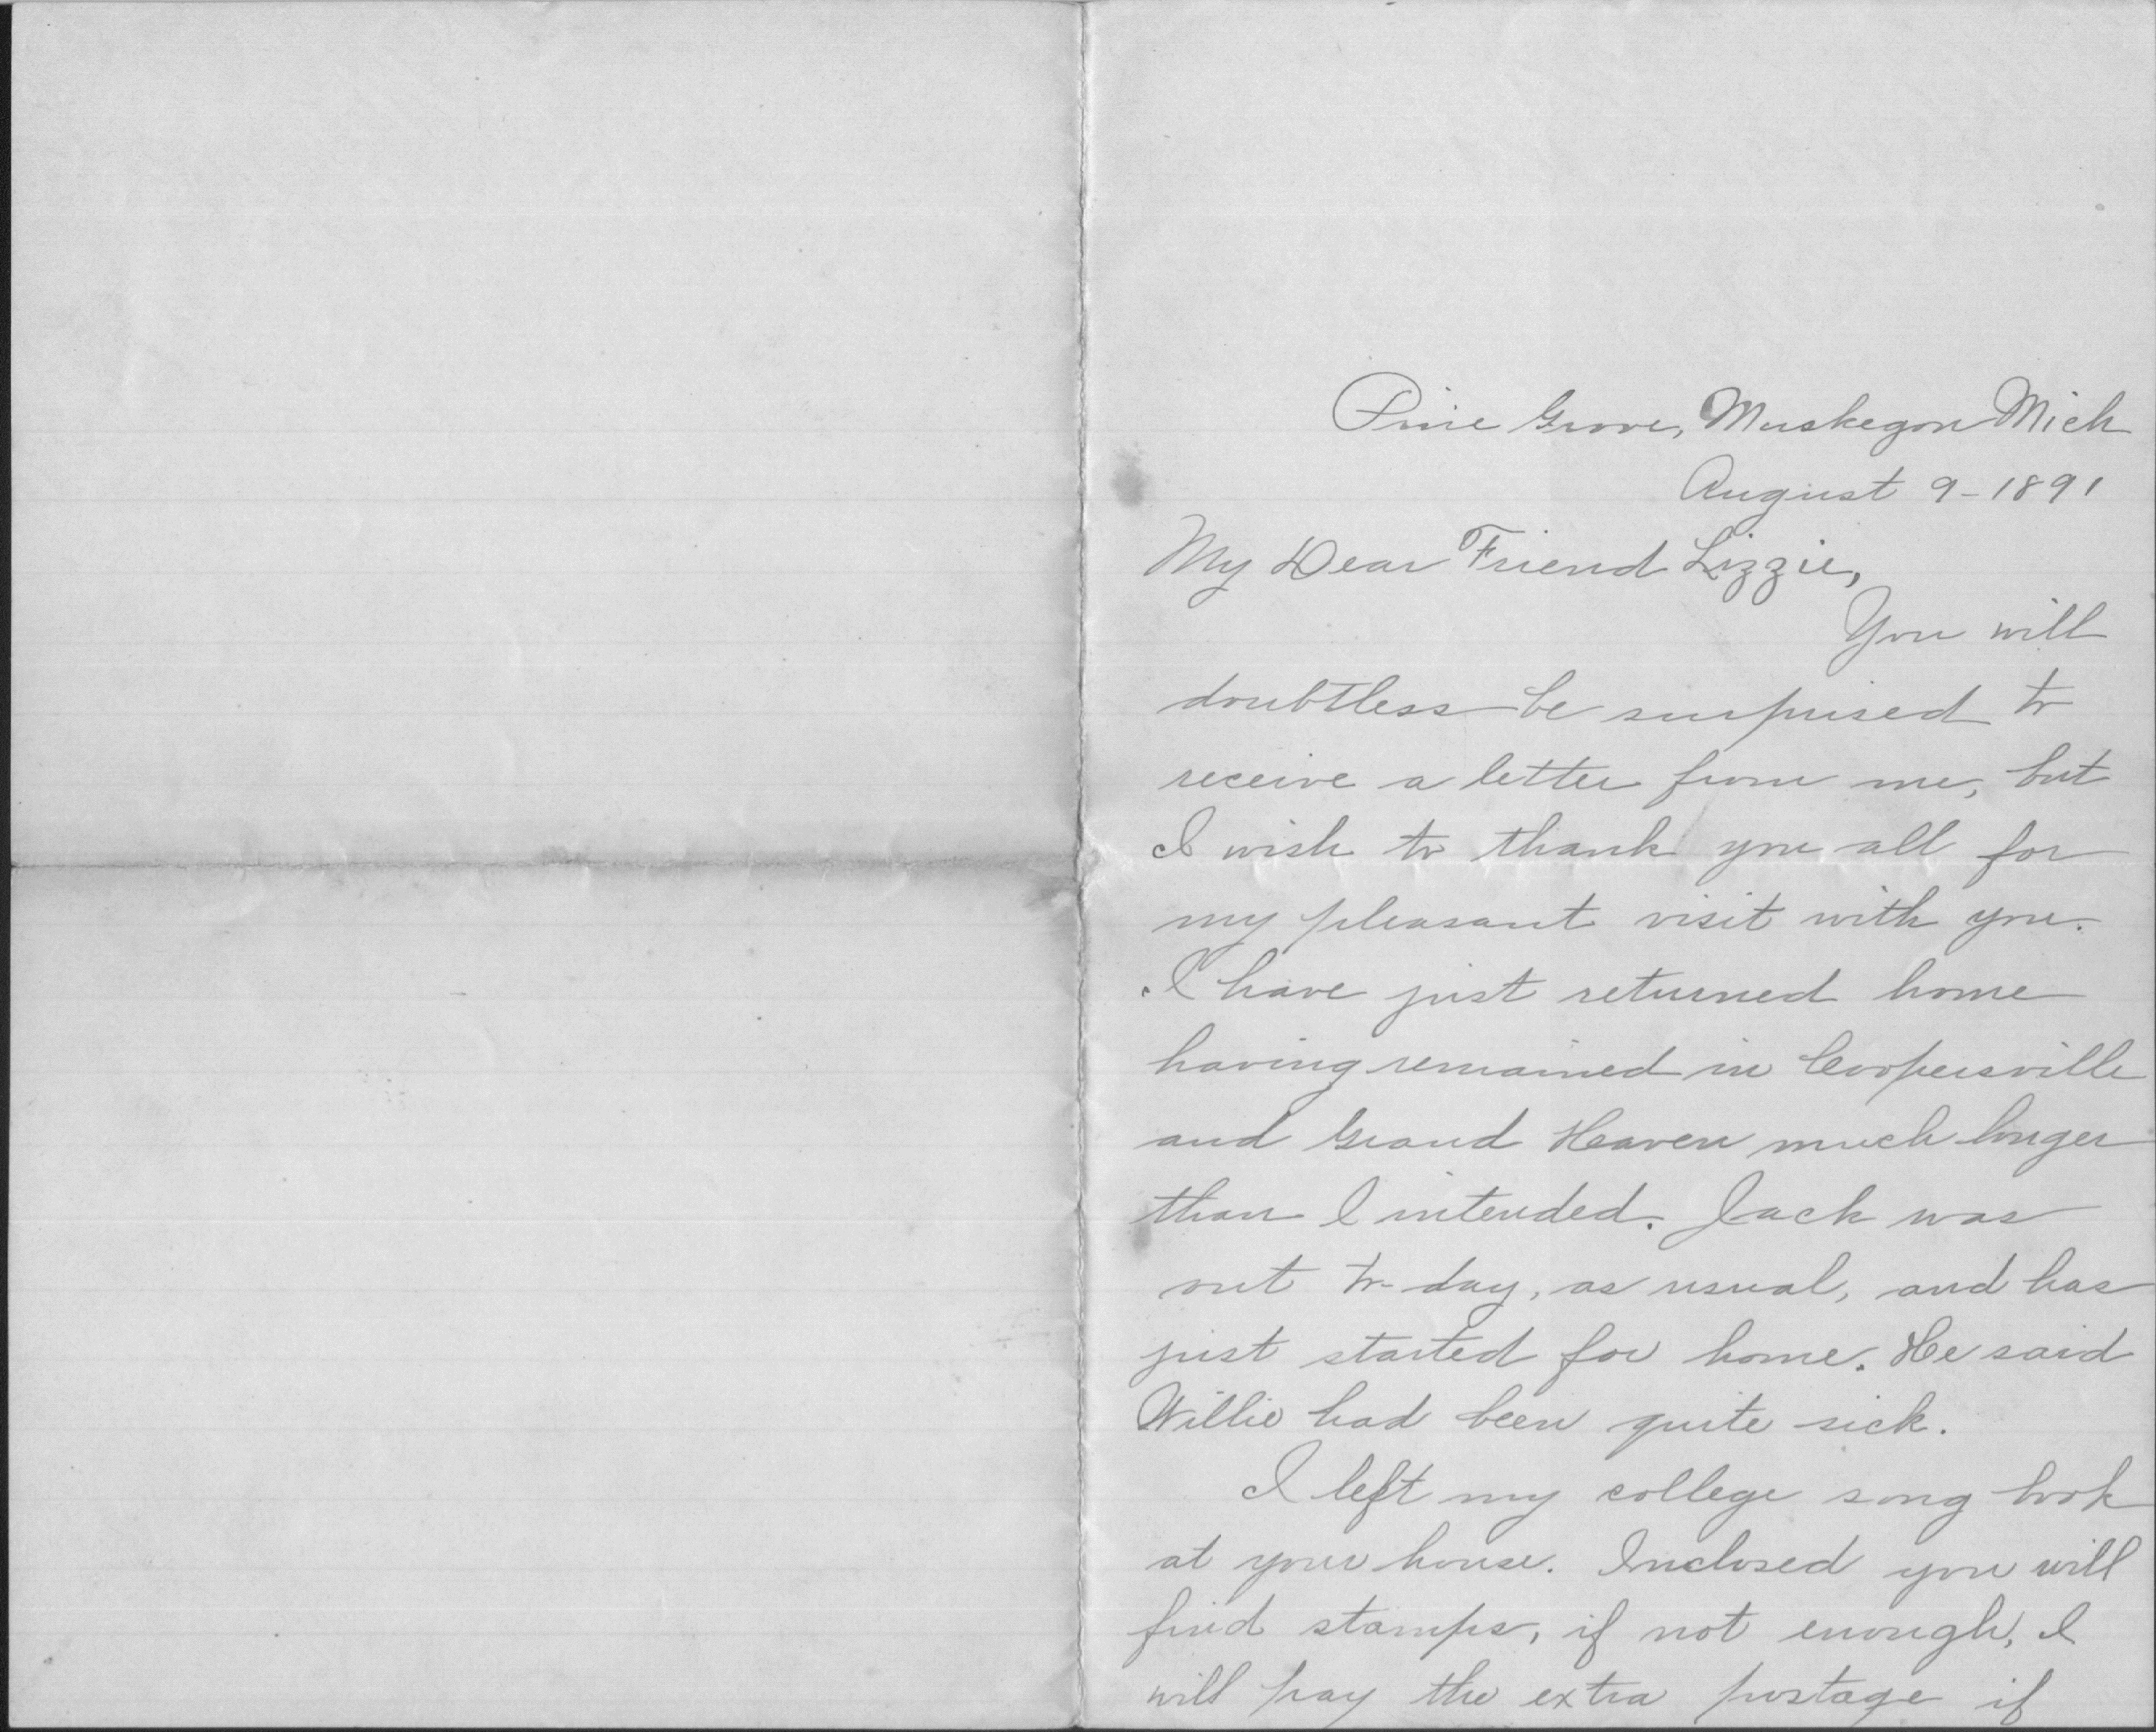 Pine Grove, Muskegon Mich
August 9-1891
My Dear Friend Lizzie,
You will
doubtless be surprised to
receive a letter from me, but
I wish to thank you all for
my pleasant visit with you.
I have just returned home
having remained in Coopersville
and Grand Heaven much longer
than I intended. Jack was
out to-day, as usual, and has
just started for home. He said
Willie had been quite sick.
I left my college song book
at your house. Inclosed you will
find stamps, if not enough, I
will pay the extra postage if